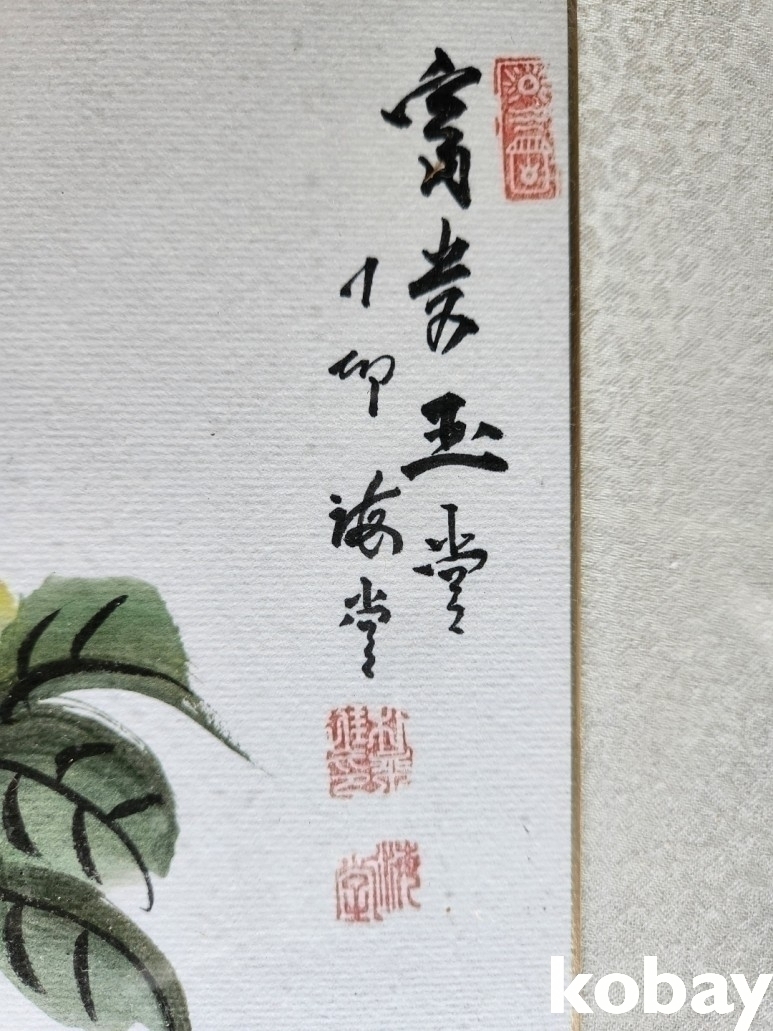 富貴玉堂
丁卯 海堂
海堂
kobay